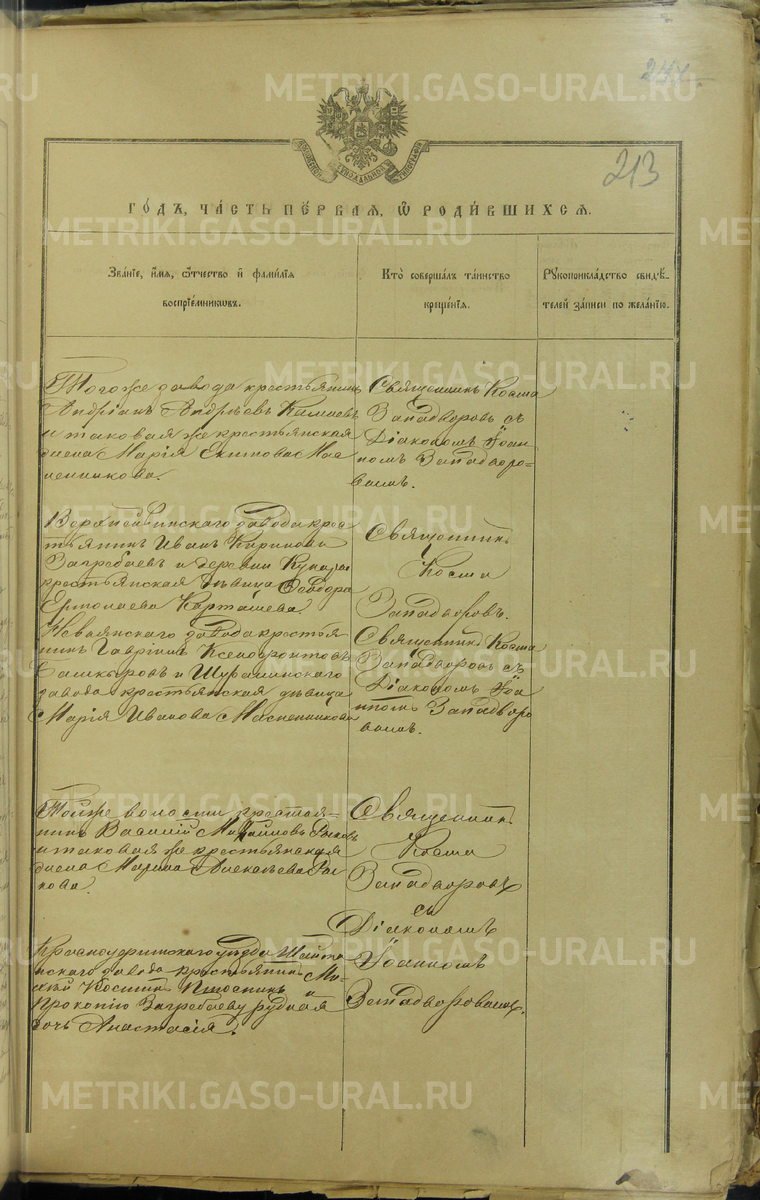 247
213
ГО́ДЪ, ЧА́СТЬ ПЕ́РВАѦ, Ѡ҆ РОДИ́ВШИХСѦ.
Зва́нїе, и҆́мѧ, ѻ҆́тчество и҆ фами́лїѧ
воспрїе́мникѡвъ.
Кто̀ соверша́лъ та́инство
креще́нїѧ.
Рꙋкоприкла́дство свидѣ́-
телей за́писи по жела́нїю.
Того же завода крестьянинъ
Андріанъ Андреевъ
и таковая же крестьянская
жена Марія
Священникъ Косма
Западворовъ съ
Діакономъ Іоан-
номъ Западворо-
вымъ.
Верхнейвинскаго завода крес
тьянинъ Иванъ
Загребаевъ и деревни
крестьянская дѣвица Ѳеодора
Ермолаева Карташева
Священникъ
Косма
Западворовъ.
Невьянскаго завода крестья
нинъ Гавріилъ Ксенофонтовъ
и Шуралинскаго
завода крестьянская дѣвица
Марія Иванова Масленникова
Священникъ Косма
Западворовъ съ
Діакономъ Іоа
нномъ Западворо
вымъ.
Той же волости крестья-
нинъ Василій Михайловъ
и таковая же крестьянская
жена Марина Алексѣева
кова.
Священникъ
Косма
Западворовъ
съ
Діакономъ
Іоанномъ
Западворовымъ.
Красноуфимскаго уѣзда Шайта
нскаго завода крестьянинъ Ми-
хей Костинъ и
Прокопію Загребаеву родная
дочь Анастасія.